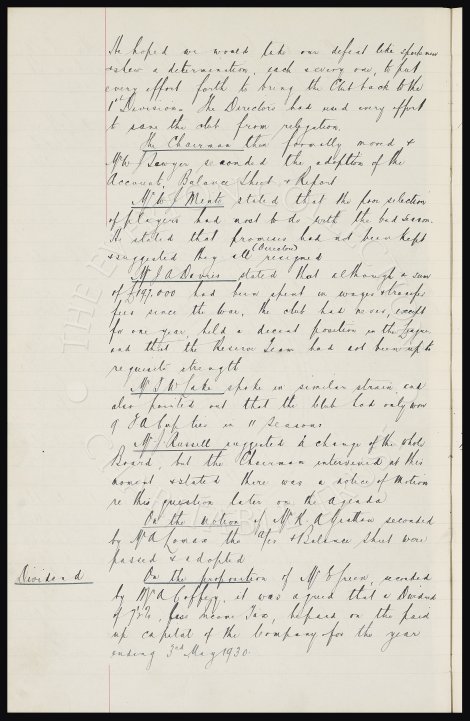 He hoped we would take our defeat like sportsmen
& shew a determination, each & every one, to put
every effort forth to bring the Club back to the
1st Division. The Directors had used every effort
to save the club from relegation.
The Chairman then formally moved &
Mr W J Sawyer seconded the adoption of the
Accounts, Balance Sheet & Report
Mr W J Minto stated that the poor selection
of players had most to do with the bad season.
He stated that promises had not been kept
& suggested they all (Directors) resigned
Mr J A Davies stated that although a sum
of £197.000 had been spent in wages & transfer
fees since the war, the club had never, except
for one year, held a decent position in the League
and that the Reserve Team had not been up to
requisite strength
Mr J W Lake spoke in similar strain, and
also pointed out that the Club had only won
9 FA Cup ties in 11 Seasons
Mr J Russell suggested a change of the whole
Board, but the Chairman intervened at this
moment & stated there was a notice of motion
re this question later on the Agenda
On the motion of Mr R. A. seconded
by Mr A Lomax the a/cs & Balance Sheet were
passed & adopted
Dividend
On the proposition of Mr E Green, seconded
by Mr A Coffey, it was agreed that a Dividend
of 7½%, less Income Tax, be paid on the paid
up capital of the Company for the year
ending 3rd May 1930.